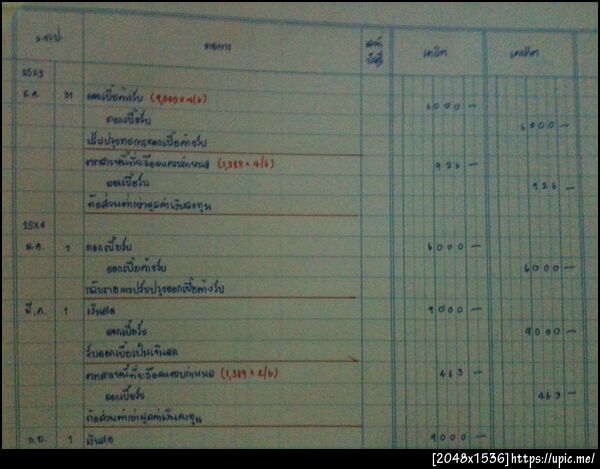 พ.ศ. รายการ เลขที่บัญชี เดบิต เครดิต
25X3
ธ.ค. 31 ดอกเบี้ยค้างรับ (9,000 x 4/6) 6000 —
ดอกเบี้ยรับ 6000 —
ปรับปรุงรายการดอกเบี้ยค้างรับ
ตราสารหนี้ที่จะถือจนครบกำหนด (1,389 x 4/6) 926 —
ดอกเบี้ยรับ 926 —
ตัดส่วนต่ำกว่ามูลค่าเงินลงทุน
25X4
ม.ค. 1 ดอกเบี้ยรับ 6000 —
ดอกเบี้ยค้างรับ 6000 —
กลับรายการปรับปรุงดอกเบี้ยค้างรับ
มี.ค. 1 เงินสด 9000 —
ดอกเบี้ยรับ 9000 —
รับดอกเบี้ยเป็นเงินสด
ตราสารหนี้ที่จะถือจนครบกำหนด (1,389 x 2/6) 463 —
ดอกเบี้ยรับ 463 —
ตัดส่วนต่ำกว่ามูลค่าเงินลงทุน
ก.ย. 1 เงินสด 9000 —
[2048x1536]https://upic.me/